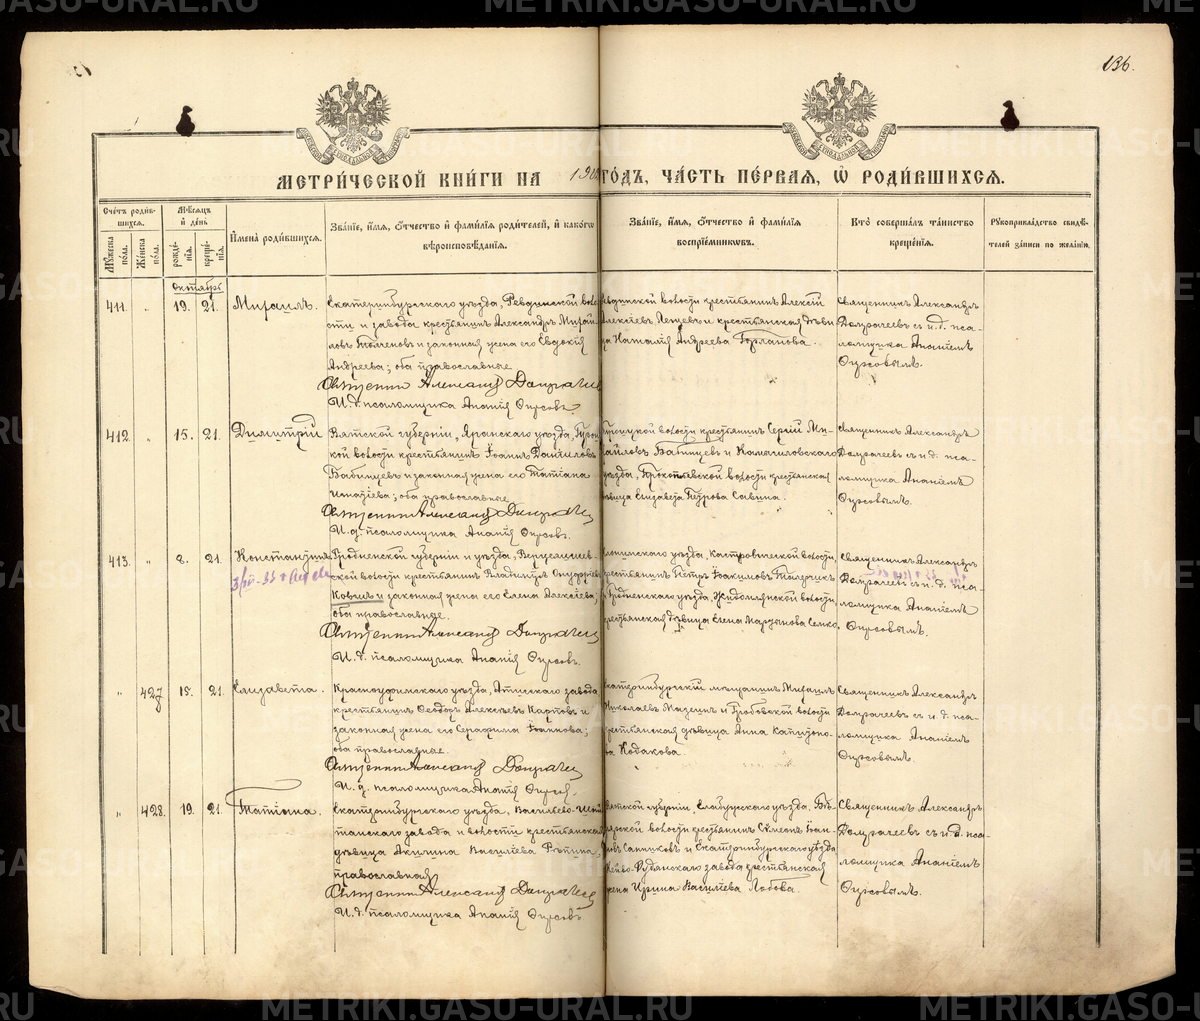 136.
МЕТРИ́ЧЕСКОЙ КНИ́ГИ НА 190 ГО́ДЪ, ЧА́СТЬ ПЕ́РВАЯ, Ѡ РОДИ́ВШИХСЯ.
Сче́тъ роди́в-
шихся.
Му́жеска по́ла.
Же́нска по́ла.
Мѣ́сяцъ
и де́нь
рожде́-
нія.
креще́-
нія.
И́мена роди́вшихся.
Зва́ніе, и́мя, о́тчество и фами́лія роди́телей, и како́гѡ
вѣроисповѣ́данія.
Зва́ніе, и́мя, о́тчество и фами́лія
воспріе́мникѡвъ.
Кто̀ соверша́лъ та́инство
креще́нія.
Рукоприкла́дство свидѣ́-
телей за́писи по жела́нію.
Октябрь
411. „ 19. 21. Михаилъ.
Екатеринбургскаго уѣзда, Ревдинской воло-
сти и завода крестьянинъ Александръ Михай-
ловъ и законная жена его Евдокія
Андреева; оба православные
Священникъ Александръ Домрачевъ
И. д. псаломщика Ананія Сырсовъ
Ревдинской волости крестьянинъ Алексій
Алексѣевъ и крестьянская дѣви-
ца Наталія Андреева Горланова.
Священникъ Александръ
Домрачевъ съ и. д. пса-
ломщика Ананіемъ
Сырсовымъ.
412. „ 15. 21. Димитрій
Вятской губерніи, Яранскаго уѣзда,
кой волости крестьянинъ Іоаннъ Даниловъ
Бабинцевъ и законная жена его Татіана
Игнатіева; оба православные
Священникъ Александръ Домрачевъ
И. д. псаломщика Ананія Сырсовъ.
волости крестьянинъ Сергій Ми-
хайловъ и Камышловскаго
уѣзда, волости крестьянская
дѣвица Елизавета Петрова Савина.
Священникъ Александръ
Домрачевъ съ и. д. пса-
ломщика Ананіемъ
Сырсовымъ.
413. „ 8. 21. Константинъ
Гродненской губерніи и уѣзда,
ской волости крестьянинъ Владиміръ Онуфріевъ
Ковшъ и законная жена его Елена Алексѣева;
оба православные.
Священникъ Александръ Домрачевъ
И. д. псаломщика Ананія Сырсовъ.
Слонимскаго уѣзда, Костровичской волости,
крестьянинъ Петръ Іоакимовъ
и Гродненскаго уѣзда, Жидомлянской волости,
крестьянская дѣвица Елена Мартынова Семко.
Священникъ Александръ
Домрачевъ съ и. д. пса-
ломщика Ананіемъ
Сырсовымъ.
„ 427 15. 21. Елизавета.
Красноуфимскаго уѣзда, Атигскаго завода,
крестьянинъ Ѳеодоръ Алексѣевъ Карповъ и
законная жена его Серафима Іоаннова;
оба православные.
Священникъ Александръ Домрачевъ
И. д. псаломщика Ананія Сырсовъ.
Екатеринбургскій мѣщанинъ Михаилъ
Николаевъ Мазеинъ и Гробовской волости
крестьянская дѣвица Анна Капитоно-
ва Кодакова.
Священникъ Александръ
Домрачевъ съ и. д. пса-
ломщика Ананіемъ
Сырсовымъ.
„ 428. 19. 21. Татіана.
Екатеринбургскаго уѣзда, Васильево-Шай-
танскаго завода и волости крестьянская
дѣвица Акилина Василіева Рѣпина,
православная
Священникъ Александръ Домрачевъ
И. д. псаломщика Ананія Сырсовъ
Вятской губерніи, Елабужскаго уѣзда,
волости крестьянинъ Сѵмеонъ Іоан-
новъ Санниковъ и Екатеринбургскаго уѣзда
Нейво-Рудянскаго завода крестьянская
жена Ирина Василіева Лобова.
Священникъ Александръ
Домрачевъ съ и. д. пса-
ломщика Ананіемъ
Сырсовымъ.
METRIKI.GASO-URAL.RU